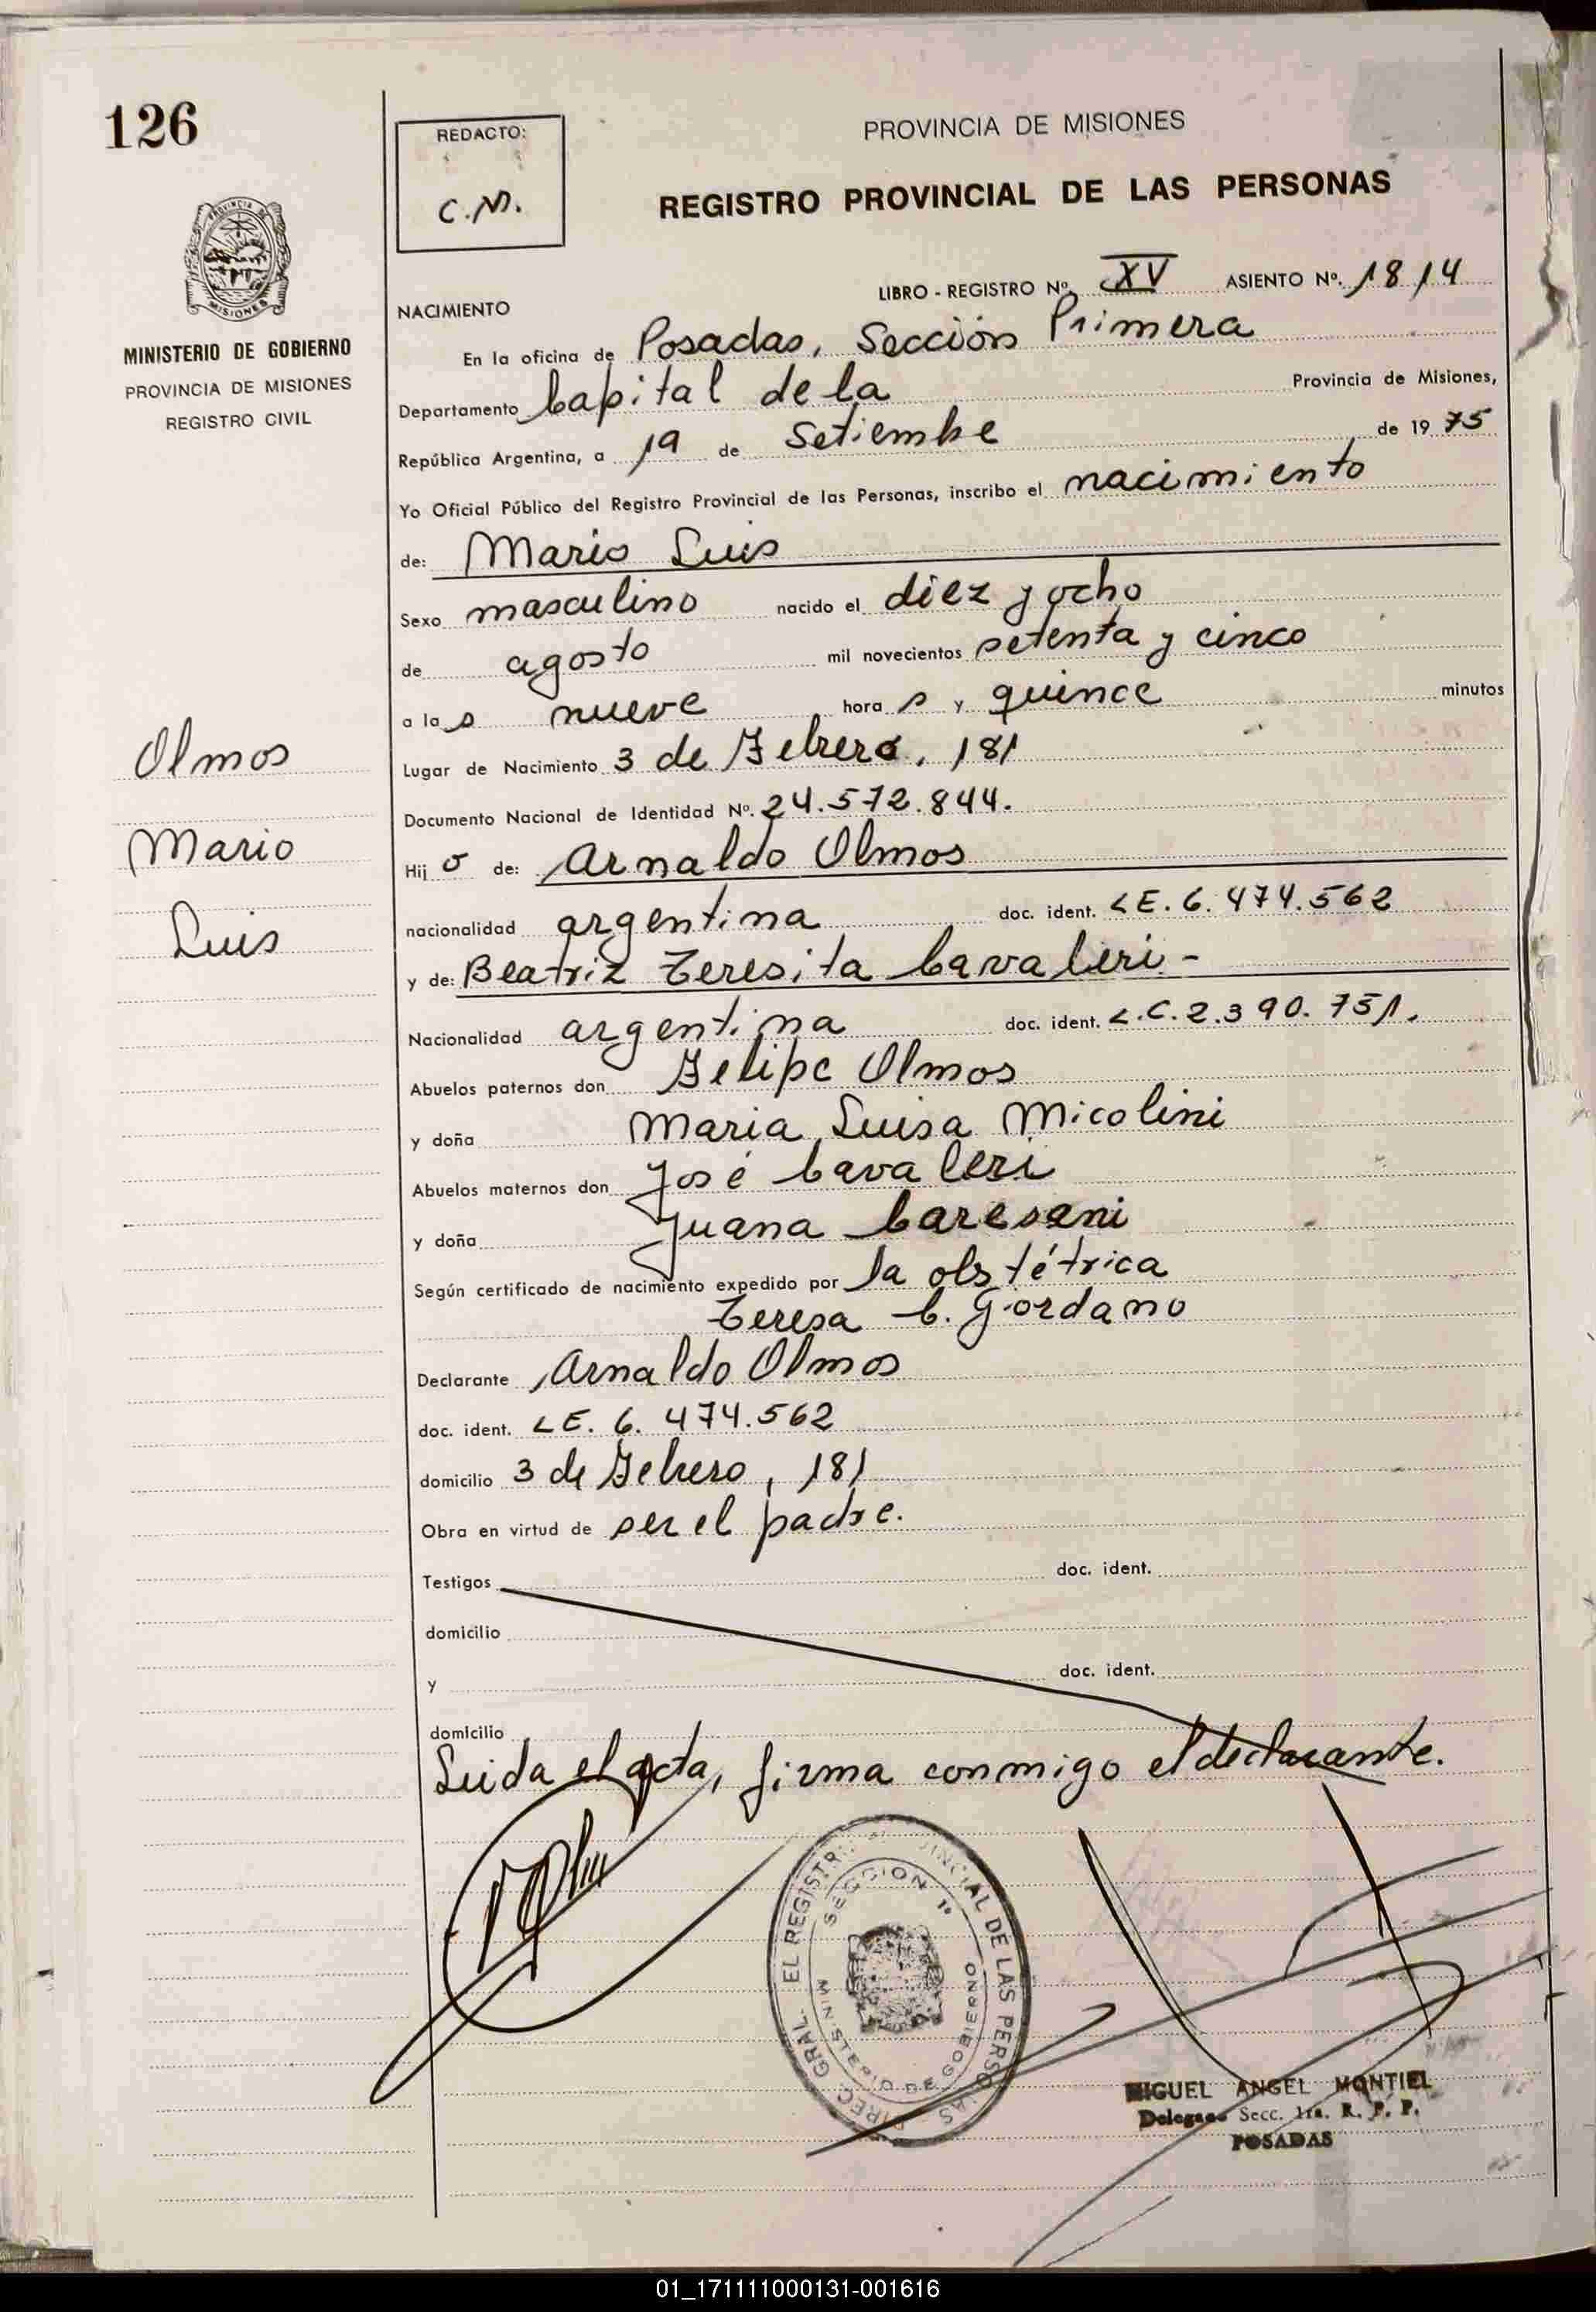 126
REDACTO:
C.M.
PROVINCIA DE MISIONES
REGISTRO PROVINCIAL DE LAS PERSONAS
PROVINCIA DE
MISIONES
MINISTERIO DE GOBIERNO
PROVINCIA DE MISIONES
REGISTRO CIVIL
LIBRO - REGISTRO Nº. XV ASIENTO Nº. 1814
NACIMIENTO
En la oficina de Posadas, Sección Primera
Departamento Capital de la Provincia de Misiones,
República Argentina, a 19 de Setiembre de 1975
Yo Oficial Público del Registro Provincial de las Personas, inscribo el nacimiento
de: Mario Luis
Sexo masculino nacido el diez y ocho
de agosto mil novecientos setenta y cinco
a la s nueve hora s y quince minutos
Lugar de Nacimiento 3 de Febrero, 181
Documento Nacional de Identidad Nº. 24.572.844.
Hij o de: Arnaldo Olmos
nacionalidad argentina doc. ident. LE. 6.474.562
y de: Beatriz Teresita Cavaleri -
Nacionalidad argentina doc. ident. L.C. 2.390.751.
Abuelos paternos don Felipe Olmos
y doña Maria Luisa Micolini
Abuelos maternos don José Cavaleri
y doña Juana Caresani
Según certificado de nacimiento expedido por la obstétrica
Teresa C. Giordano
Declarante Arnaldo Olmos
doc. ident. LE. 6.474.562
domicilio 3 de Febrero, 181
Obra en virtud de ser el padre.
Testigos doc. ident.
domicilio
y doc. ident.
domicilio
Leida el acta, firma conmigo el declarante.
Olmos
Mario
Luis
DIREC. GRAL. EL REGISTRO PROVINCIAL DE LAS PERSONAS
SECCION 1ª
MINISTERIO DE GOBIERNO
MIGUEL ANGEL MONTIEL
Delegado Secc. 1ra. R. P. P.
POSADAS
01_171111000131-001616